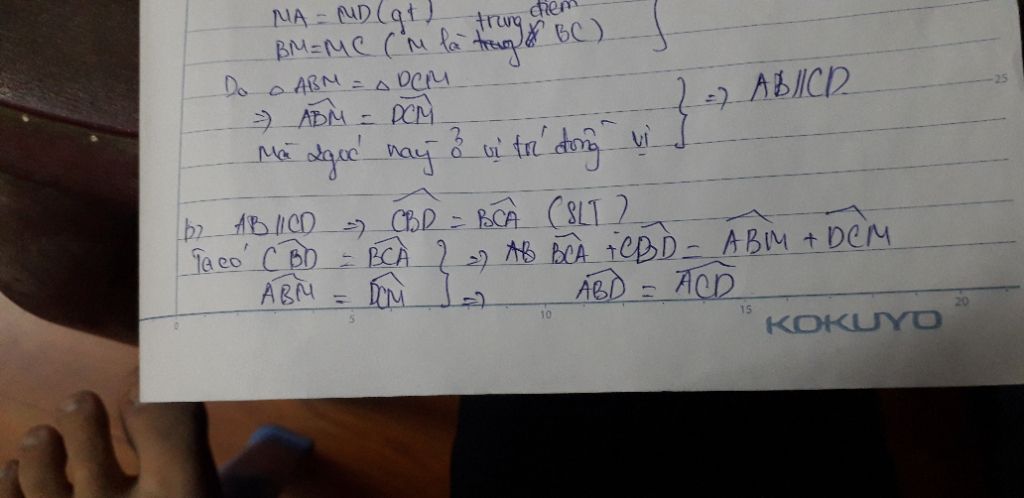 MA = MD (gt)
BM = MC (M là trung điểm BC)
Do △ ABM = △ DCM
=> ABM = DCM
Mà 2 góc này ở vị trí đồng vị
=> AB//CD
25
b) AB//CD => CBD = BCA (SLT)
Ta có CBD = BCA } => AB BCA + CBD = ABM + DCM
ABM = DCM } => ABD = ACD
0 5 10 15 20
KOKUYO